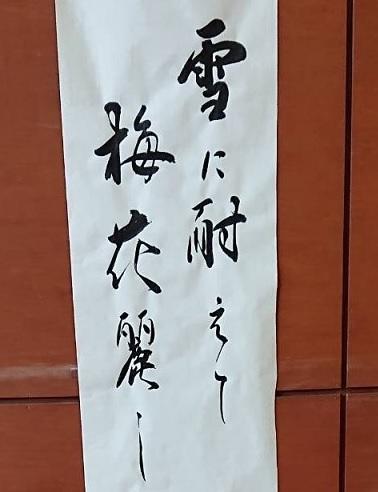 雪に耐えて
梅花麗し